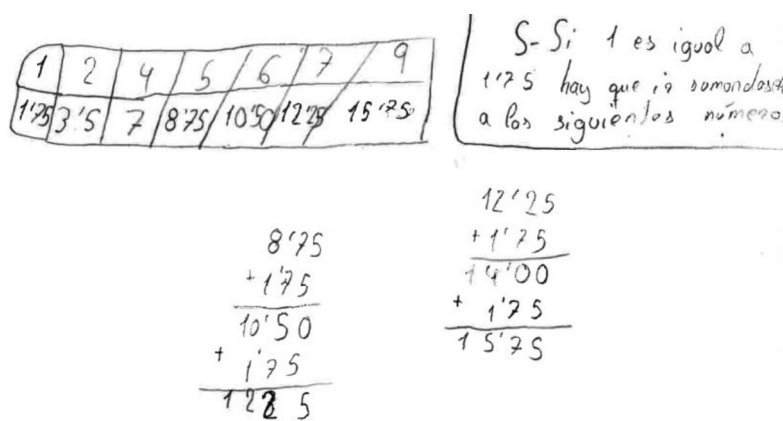 1 2 4 5 6 7 9
1'75 3'5 7 8'75 10'50 12'25 15'75
S- Si 1 es igual a
1'75 hay que ir
a los siguientes número
8'75
+1'75
10'50
+ 1'75
1225
12'25
+1'75
14'00
+ 1'75
15'75